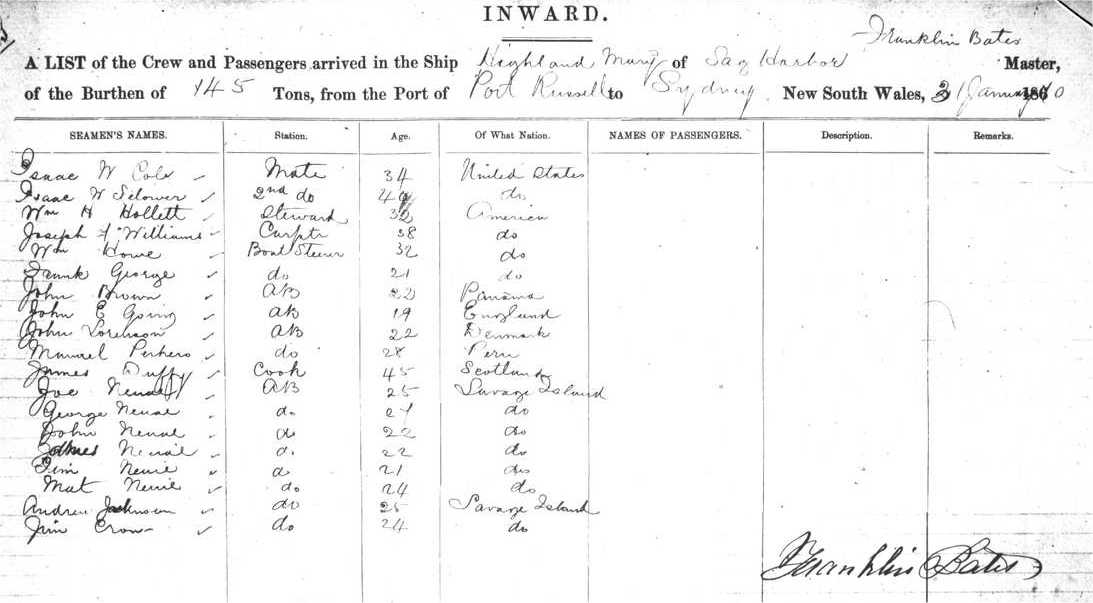 INWARD.
Franklin Bates
A LIST of the Crew and Passengers arrived in the Ship Highland Mary of Sag Harbor Master,
of the Burthen of 145 Tons, from the Port of Port Russell to Sydney New South Wales, 31 January 1860
SEAMEN'S NAMES. Station. Age. Of What Nation. NAMES OF PASSENGERS. Description. Remarks.
Isaac W Cole Mate 34 United States
Isaac W 2nd do do
Wm H Hollett Steward America
Joseph F Williams Carptr 38 do
Wm Howe Boat Steerer 32 do
Frank George do 21 do
John Brown AB 22 Panama
John E Going AB 19 England
John Lorenson AB 22 Denmark
Manuel do 28 Peru
James Duffy Cook 45 Scotland
Joe AB 25 Savage Island
George Neuae do do
John Neuae do 22 do
Neuaie 22 do
Tim Neuie 21 do
Mat Neuie do 24 do
Andrew Jackson do 25 Savage Island
Jim Crow do 24 do
Franklin Bates